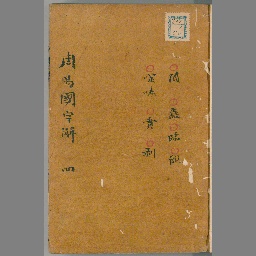 隨 蠱 臨 觀
噬嗑 賁 剥
周易國字解 四